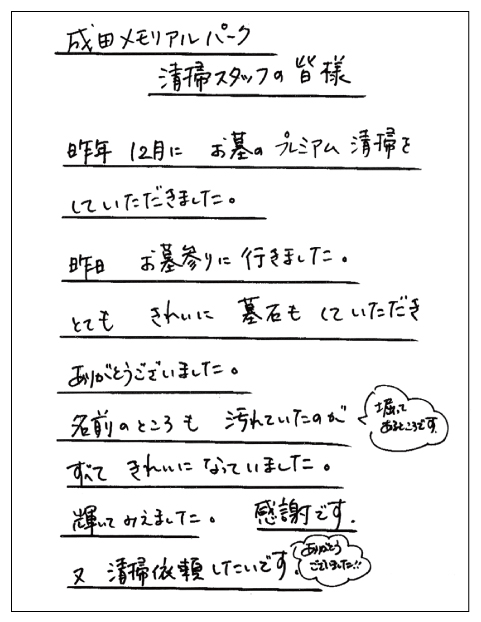 成田メモリアルパーク
清掃スタッフの皆様
昨年 12月に お墓の プレミアム 清掃を
していただきました。
昨日 お墓参りに 行きました。
とても きれいに 墓石も していただき
ありがとうございました。
名前のところも 汚れていたのが
堀って
あるところです。
すべて きれいに なっていました。
輝いてみえました。 感謝です.
又 清掃依頼したいです.
ありがとう
ございました!!